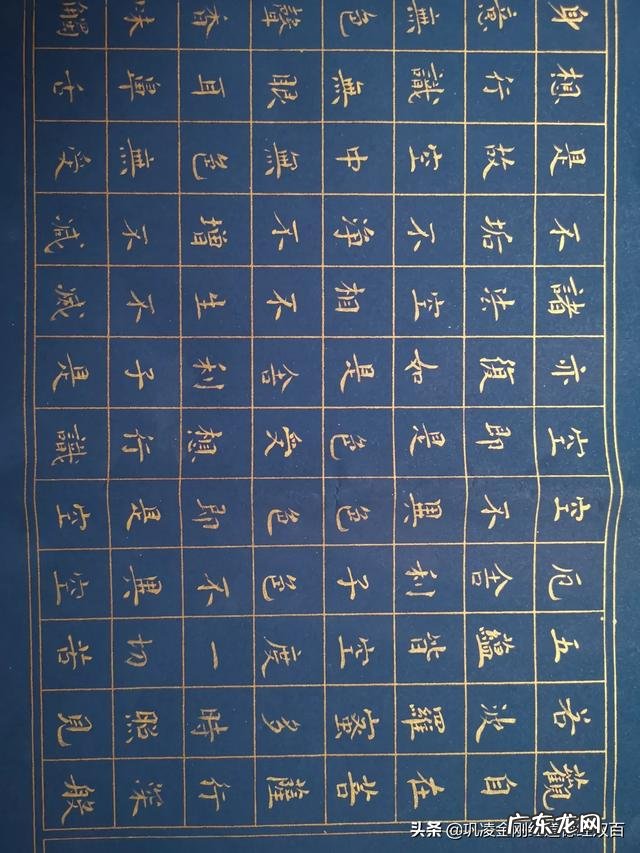 觀自在菩薩行深般
若波羅蜜多時照見
五蘊皆空度一切苦
厄舍利子色不異空
空不異色色即是空
空即是色受想行識
亦復如是舍利子是
諸法空相不生不滅
不垢不淨不增不減
是故空中無色無受
想行識無眼耳鼻舌
身意無色聲香味觸
头条 @巩凌金刚经道德经汉百
广东龙网